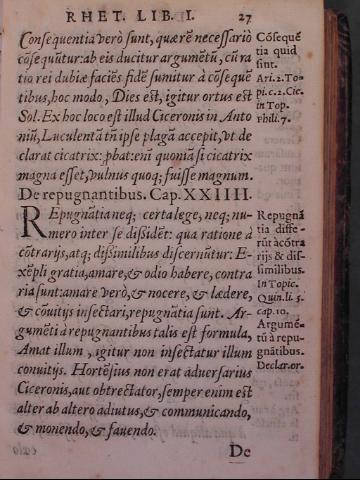 RHET. LIB. I. 27
Consequentia verò sunt, quæ rē necessariò
cōsequūtur: ab eis ducitur argumētū, cū ra
tio rei dubiæ faciēs fidē sumitur à cōsequē
tibus, hoc modo, Dies est, igitur ortus est
Sol. Ex hoc loco est illud Ciceronis in Anto
niū, Luculentā tñ ipse plagā accepit, vt de
clarat cicatrix: phat.enī quoniā si cicatrix
magna esset, vulnus quoq; fuisse magnum.
De repugnantibus. Cap. XXIIII.
REpugnātia neq; certa lege, neq; nu-
mero inter se dissidēt: qua ratione à
cōtrarijs, atq; dissimilibus discernūtur: E-
xēpli gratia, amare, & odio habere, contra
ria sunt: amare verò, & nocere, & lædere,
& cōuitijs insectari, repugnātia sunt. Ar-
gumēti à repugnantibus talis est formula,
Amat illum, igitur non insectatur illum
conuitijs. Hortēsius non erat aduersarius
Ciceronis, aut obtrectator, semper enim est
alter ab altero adiutus, & communicando,
& monendo, & fauendo.
De
Cōsequē
tia quid
sint.
Ari. 2. To-
pi. c. 2. Cic.
in Top.
Phili. 7.
Repugnā
tia diffe-
rūt à cōtra
rijs & dis-
similibus.
In Topic.
Quin. li. 5.
cap. 10.
Argumē-
tū à repu-
gnātibus.
Declarator.